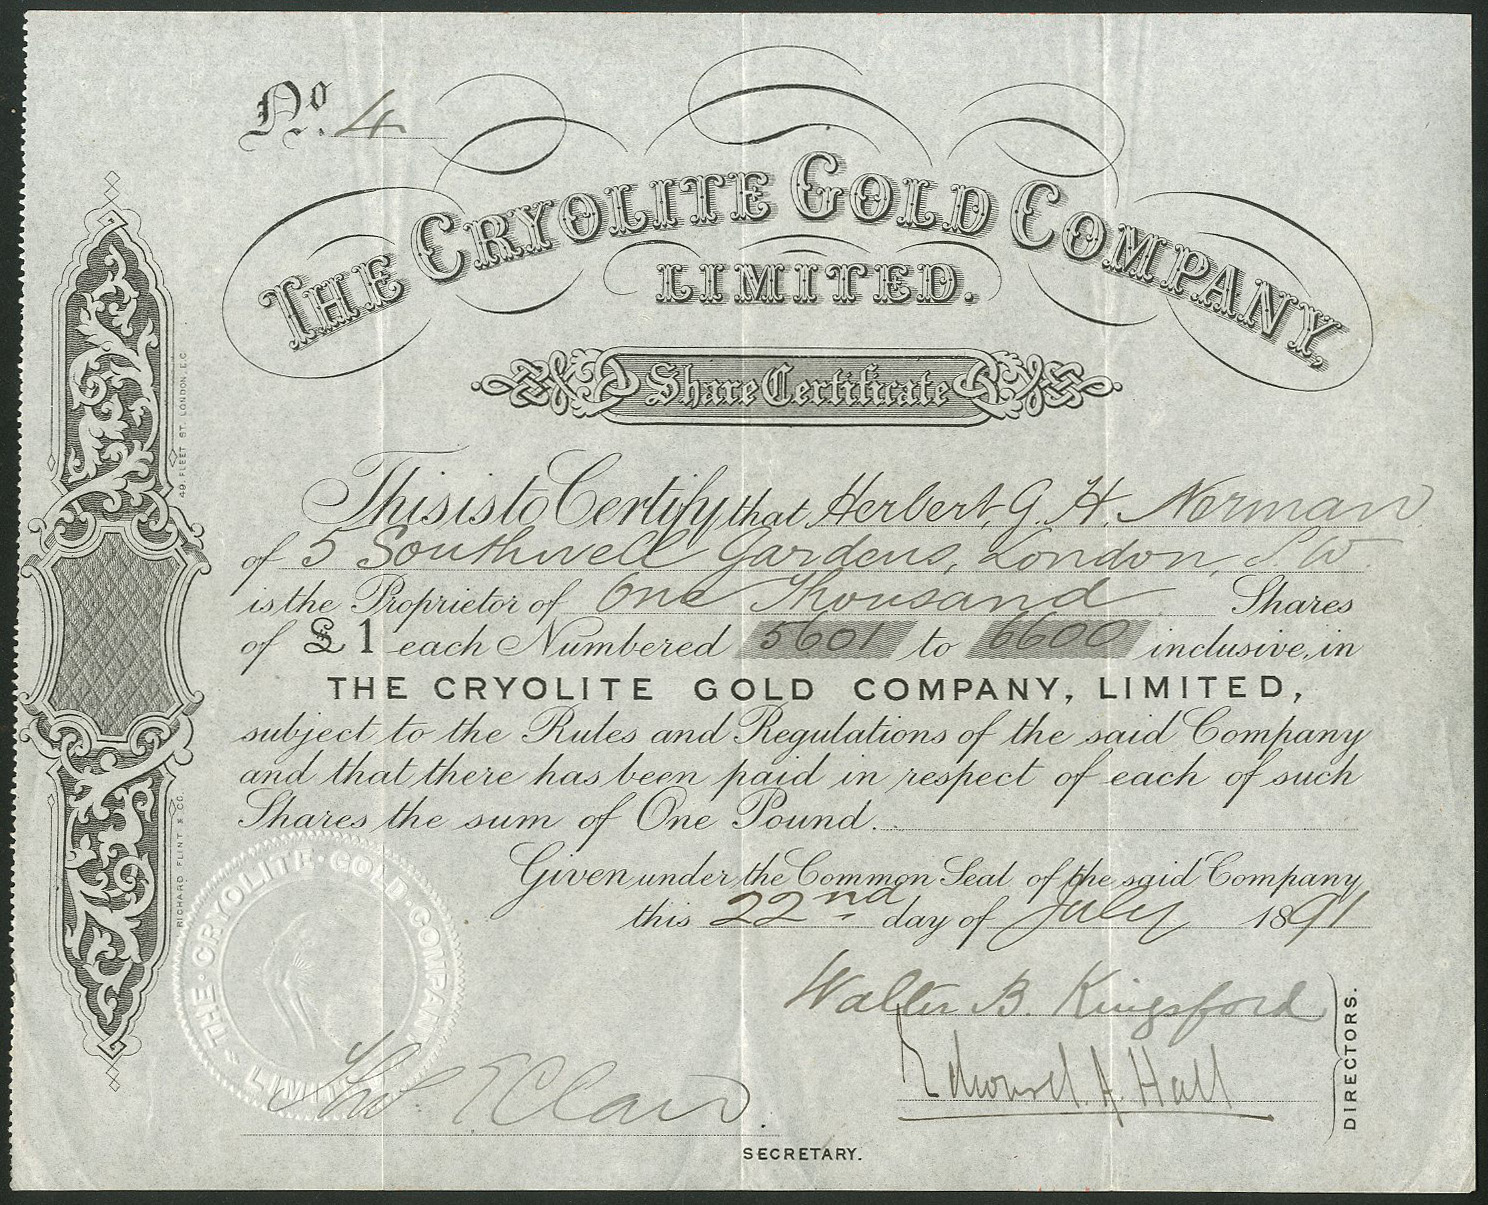 No. 4
THE CRYOLITE GOLD COMPANY,
LIMITED.
Share Certificate
This is to Certify that Herbert G. H. Norman
of 5 Southwell Gardens, London, S.W.
is the Proprietor of One Thousand Shares
of £1 each Numbered 5601 to 6600 inclusive, in
THE CRYOLITE GOLD COMPANY, LIMITED,
subject to the Rules and Regulations of the said Company
and that there has been paid in respect of each of such
Shares the sum of One Pound.
Given under the Common Seal of the said Company
this 22nd day of July 1891
Walter B. Kingsford
Edward A. Hall
DIRECTORS.
SECRETARY.
THE · CRYOLITE · GOLD · COMPANY
LIMITED
RICHARD FLINT & CO. 49, FLEET ST. LONDON, E.C.